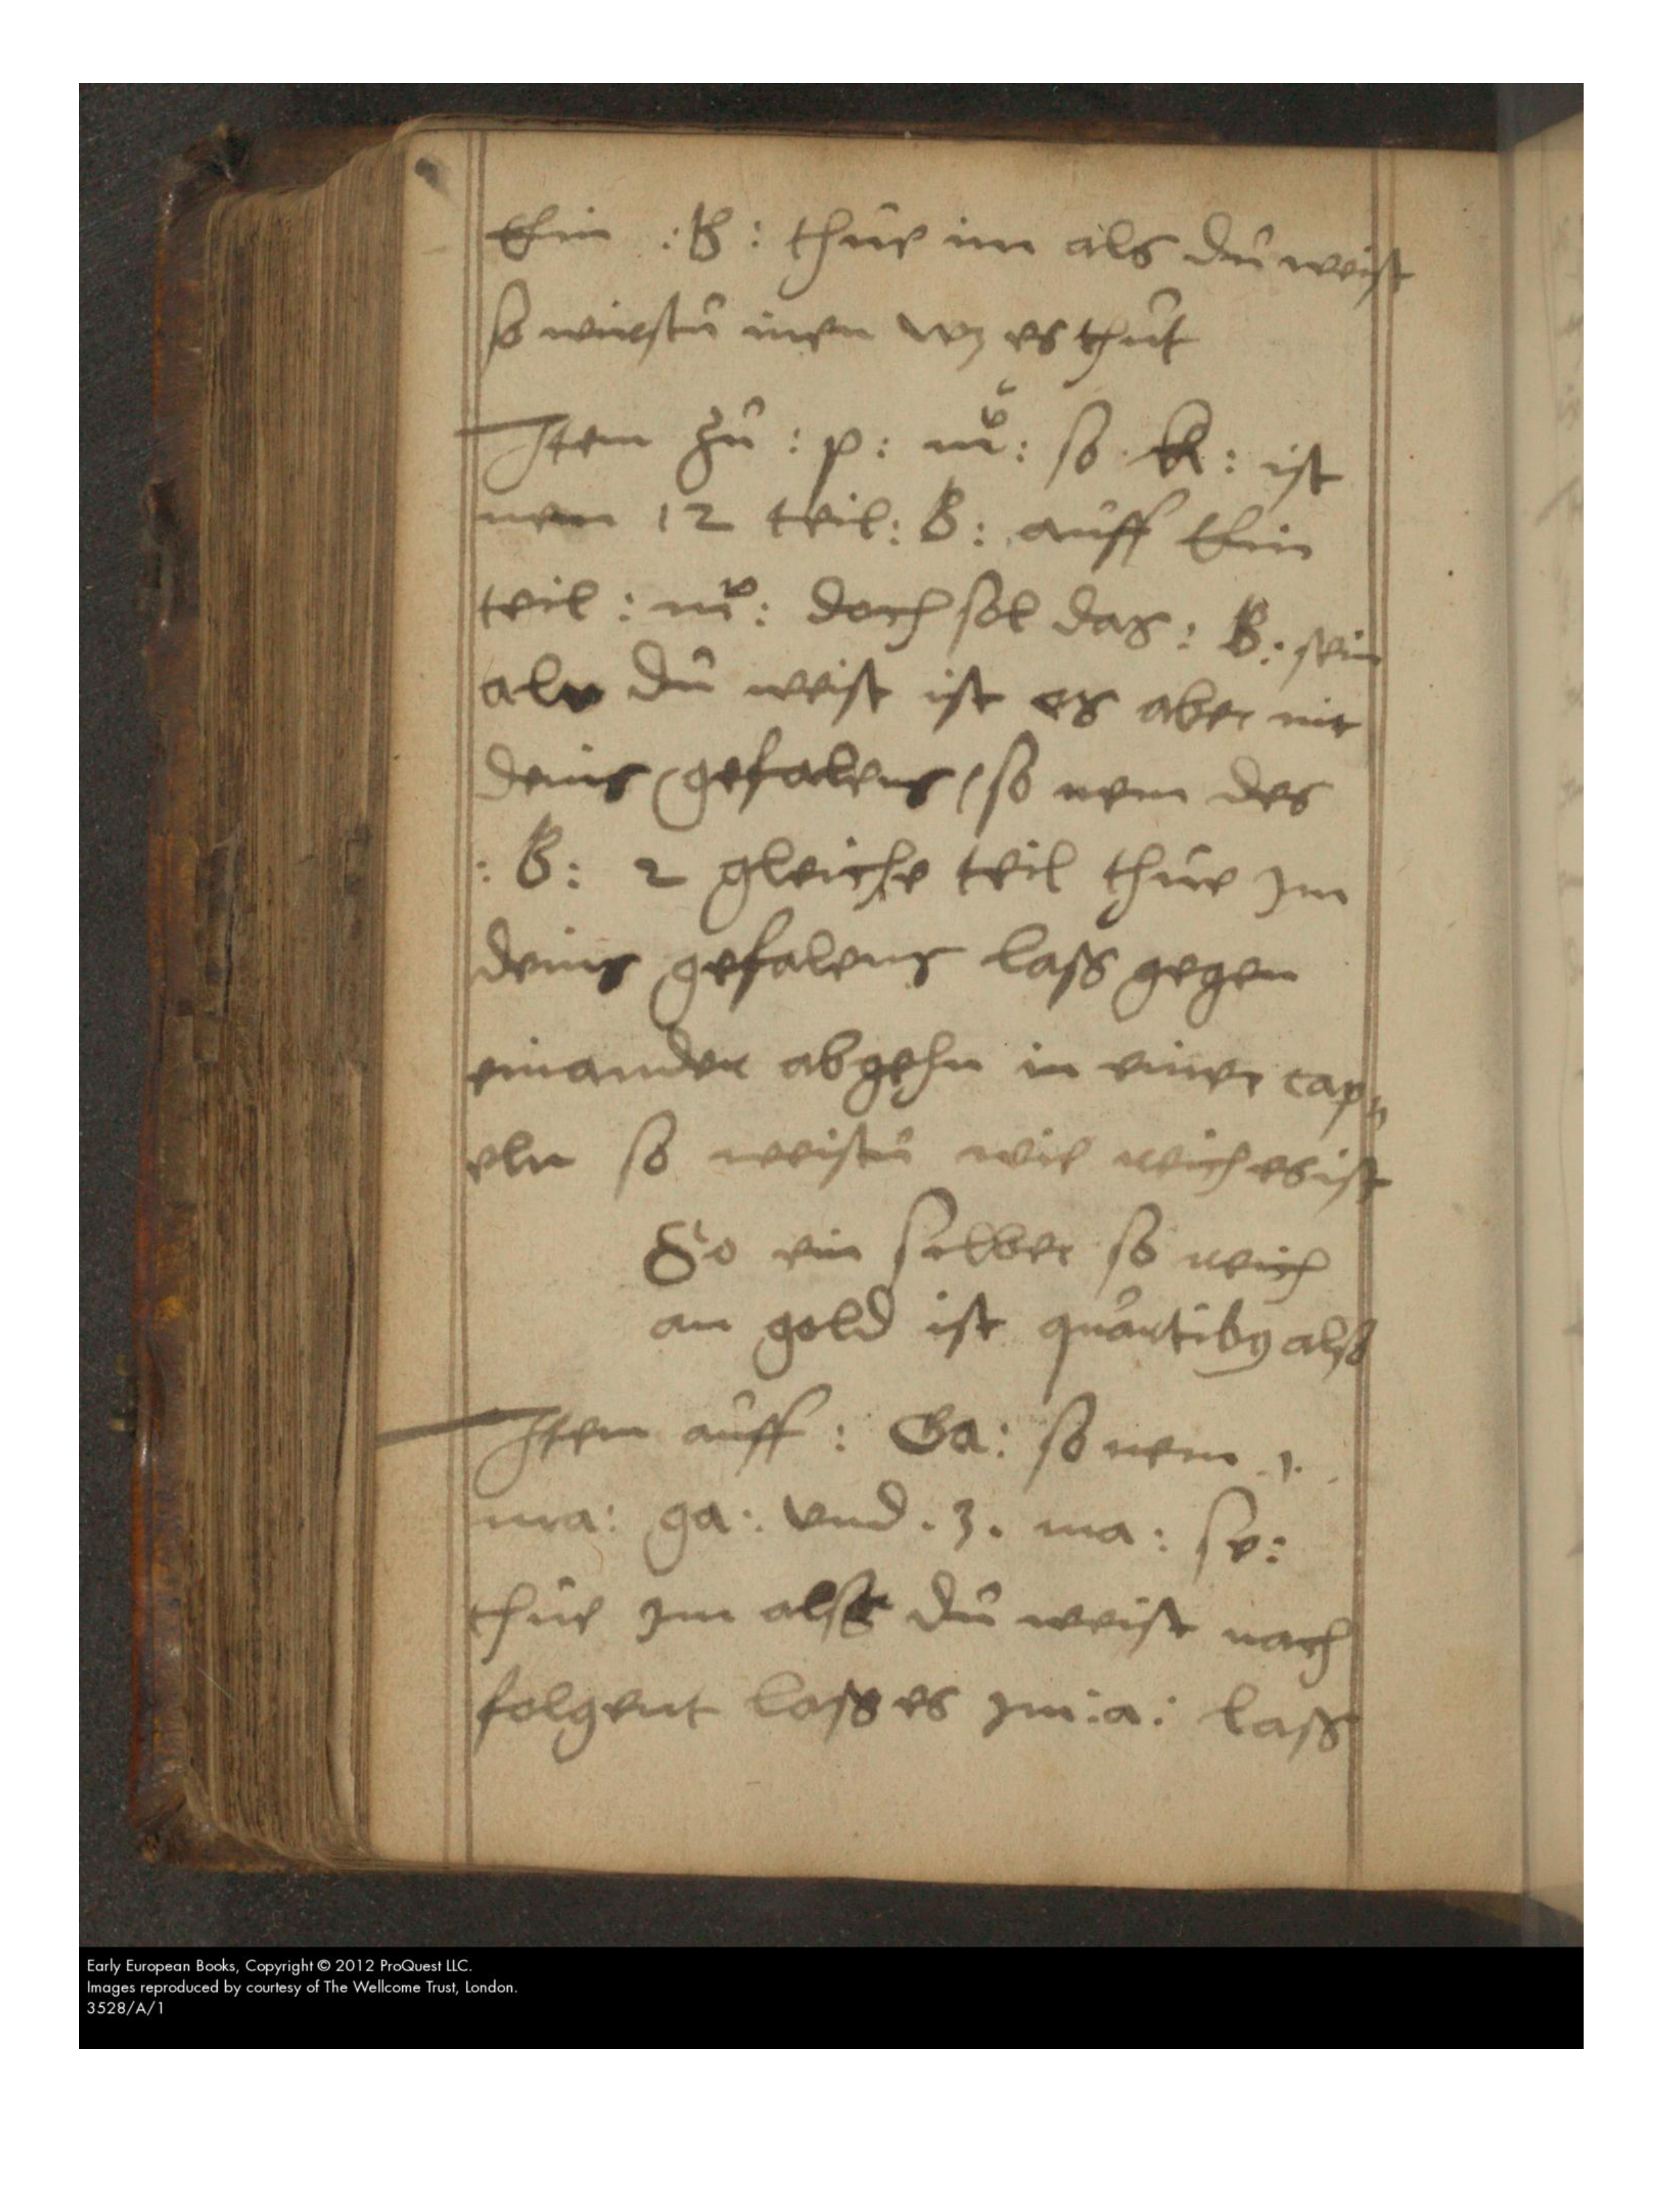 Ein : B : thue im als du weist
so wirstu inen wz es thut
Item zu : p : so : ist
nem 12 teil : B : auff Ein
teil : doch sol das : B : sein
als du weist ist es aber nit
deins gefalens / so nem des
: B : 2 gleiche teil thue Im
deins gefalens lass gegen
einander abgehn in einer cap=
eln so weistu wie reich es ist
So ein selber so reich
an gold ist als
Item auff : Ga : so nem .1.
ma : ga : vnd . 3 . ma : se :
thue Im alss du weist nach
folgent lass es Im : a : lass
Early European Books, Copyright © 2012 ProQuest LLC.
Images reproduced by courtesy of The Wellcome Trust, London.
3528/A/1